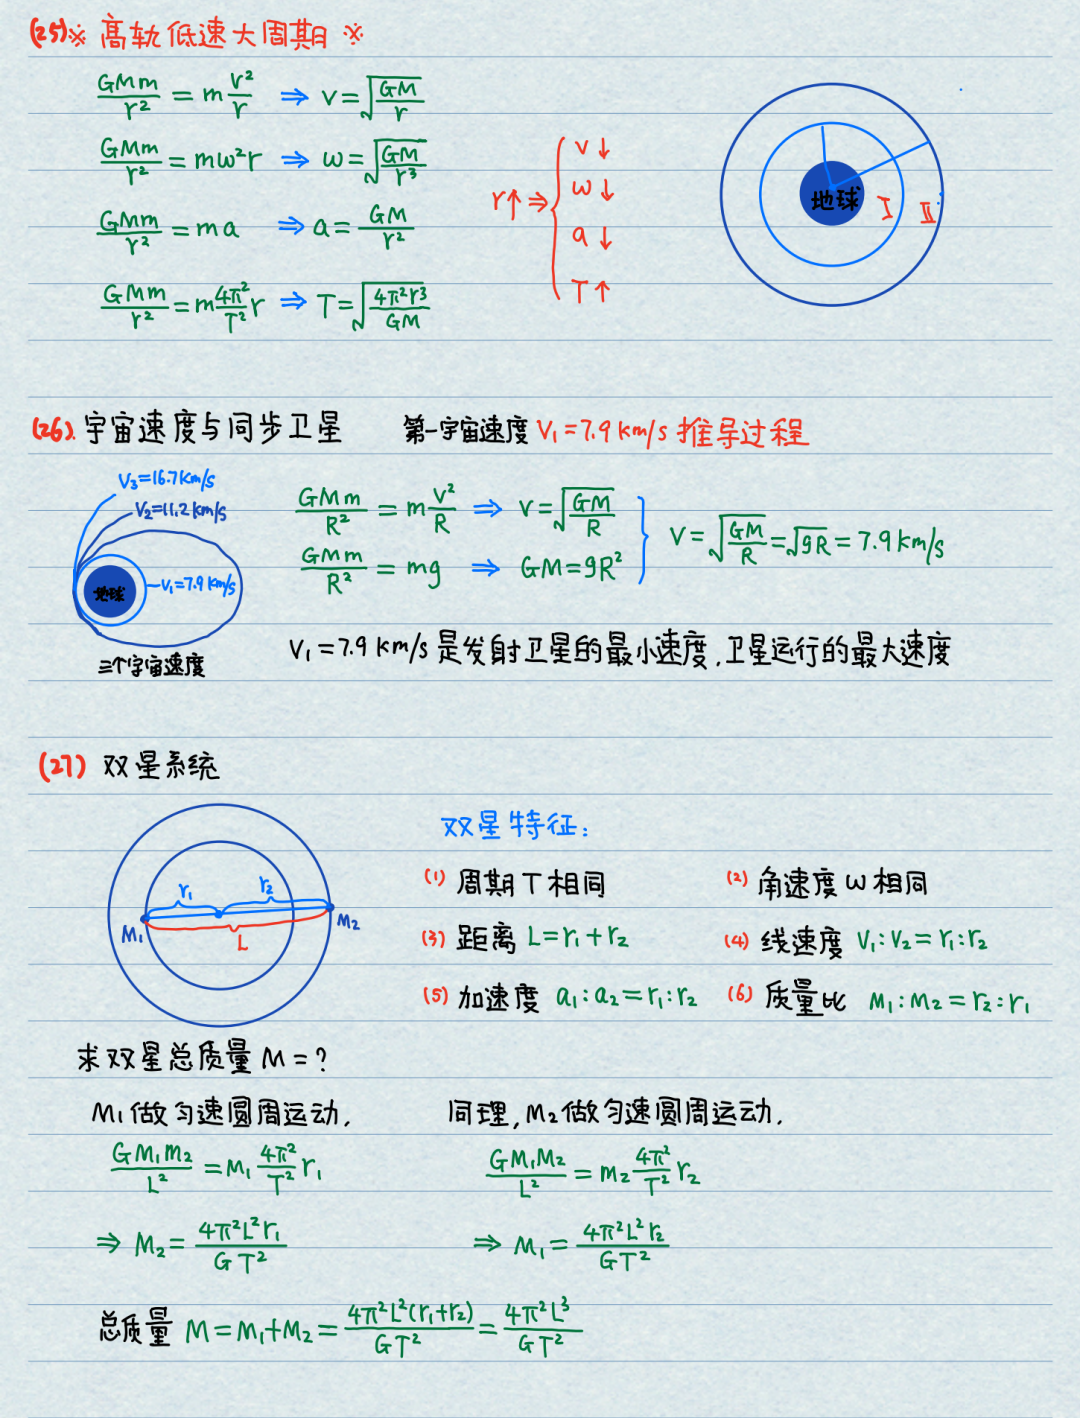 (25)※ 高轨低速大周期 ※
GMm/r² = m v²/r ⇒ v=√(GM/r)
GMm/r² = mω²r ⇒ ω=√(GM/r³)
GMm/r² = ma ⇒ a= GM/r²
GMm/r² = m 4π²/T² r ⇒ T=√(4π²r³/GM)
r↑ ⇒ { v↓
ω↓
a↓
T↑
地球 I II
(26). 宇宙速度与同步卫星 第一宇宙速度 V₁=7.9 km/s 推导过程
V₃=16.7km/s
V₂=11.2km/s
V₁=7.9 km/s
地球
三个宇宙速度
GMm/R² = m v²/R ⇒ v=√(GM/R)
GMm/R² = mg ⇒ GM=gR²
} v=√(GM/R)=√gR = 7.9 km/s
V₁=7.9 km/s 是发射卫星的最小速度,卫星运行的最大速度
(27) 双星系统
r₁ r₂
M₁ L M₂
双星特征:
(1) 周期T相同 (2) 角速度ω相同
(3) 距离 L=r₁+r₂ (4) 线速度 V₁:V₂=r₁:r₂
(5) 加速度 a₁:a₂=r₁:r₂ (6) 质量比 M₁:M₂=r₂:r₁
求双星总质量 M=?
M₁做匀速圆周运动, 同理,M₂做匀速圆周运动,
GM₁M₂/L² = M₁ 4π²/T² r₁ GM₁M₂/L² = M₂ 4π²/T² r₂
⇒ M₂= 4π²L²r₁/GT² ⇒ M₁= 4π²L²r₂/GT²
总质量 M=M₁+M₂= 4π²L²(r₁+r₂)/GT² = 4π²L³/GT²